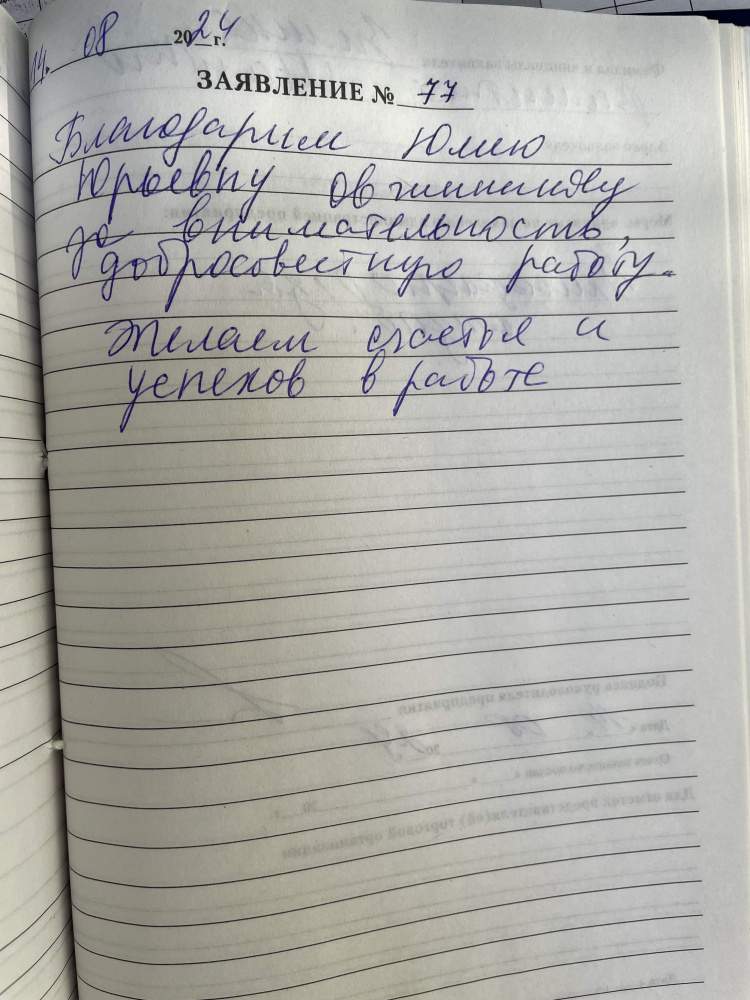 14. 08 2024 г.
ЗАЯВЛЕНИЕ № 77
Благодарим Юлию
Юрьевну Овчинникову
за внимательность,
добросовестную работу.
Желаем счастья и
успехов в работе